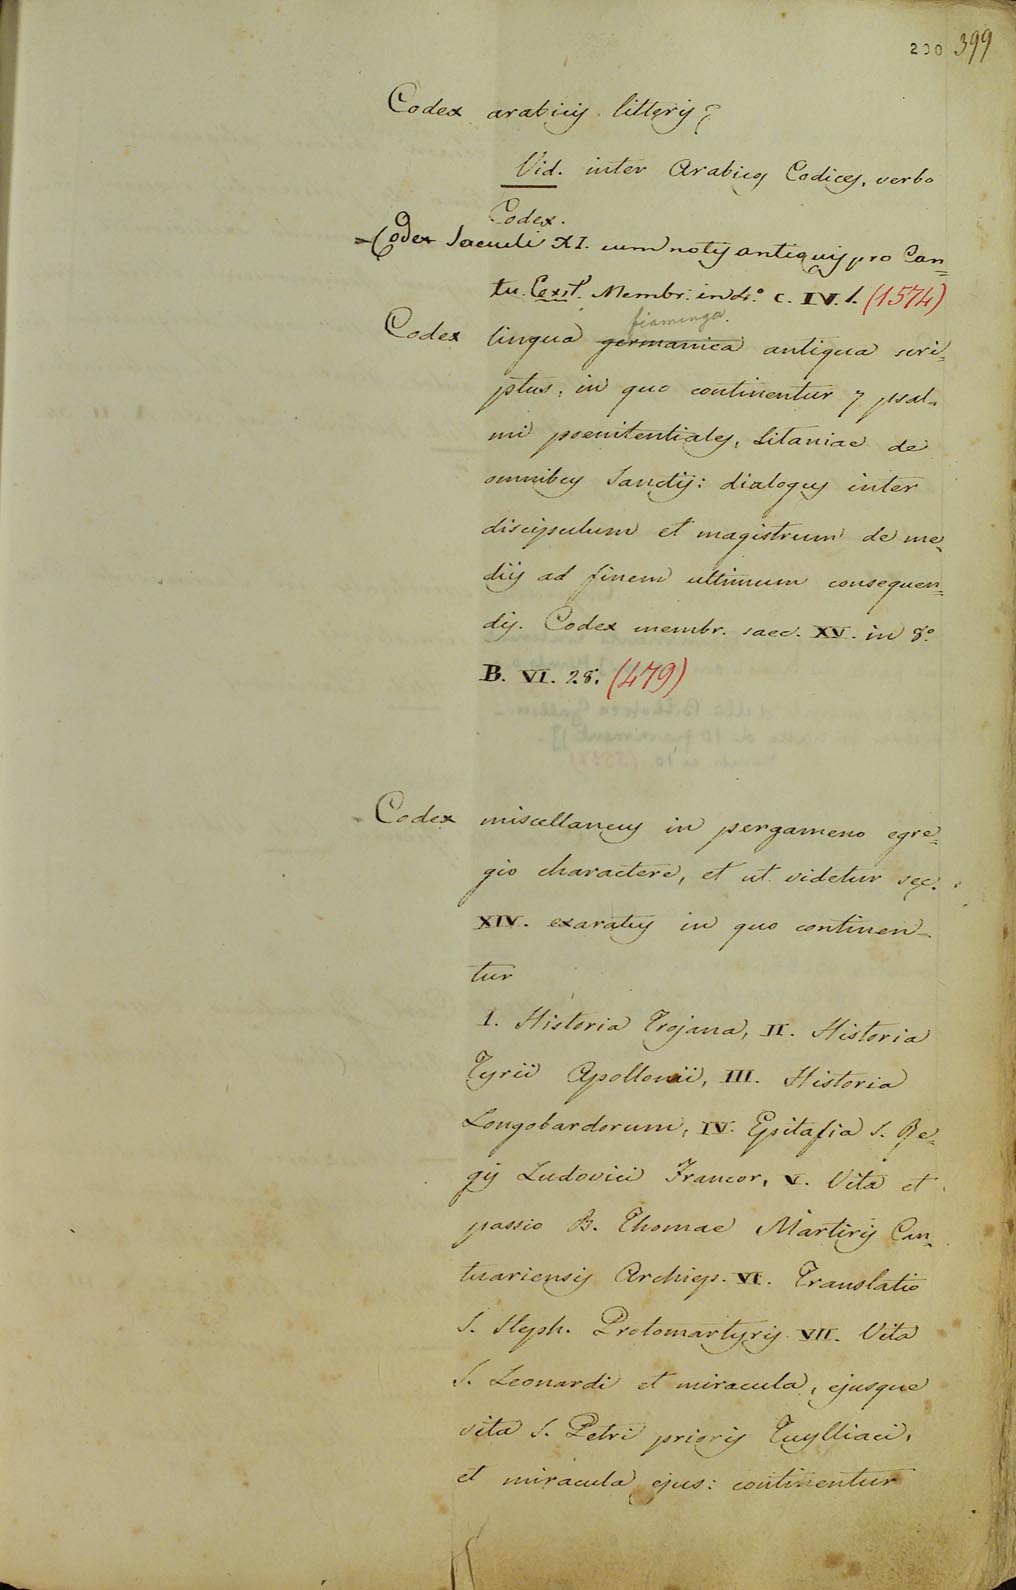 230 399
Codex arabicis litteris
Vid. inter Arabicos Codices, verbo
Codex.
Codex Saeculi XI. cum notis antiquis pro Can=
tu. Membr. in 4.° C. IV. 1. (1574)
fiaminga.
Codex lingua germanica antiqua scri=
ptus, in quo continentur 7 psal=
mi poenitentiales, Litaniae de
omnibus Sanctis: dialogus inter
discipulum et magistrum de me=
diis ad finem ultimum consequen=
dis. Codex membr. saec. XV. in 8.°
B. VI. 28. (479)
Codex miscellaneus in pergameno egre=
gio charactere, et ut videtur sec.
XIV. exaratus in quo continen=
tur
I. Historia Trojana, II. Historia
Tyrii Apollonii, III. Historia
Longobardorum, IV. Epitafia S. Re=
gis Ludovici Francor, V. Vita et
passio B. Thomae Martiris Can=
tuariensis Archiep. VI. Translatio
S. Steph. Protomartyris VII. Vita
S. Leonardi et miracula, ejusque
vita S. Petri prioris Tuylliaci,
et miracula ejus: continentur